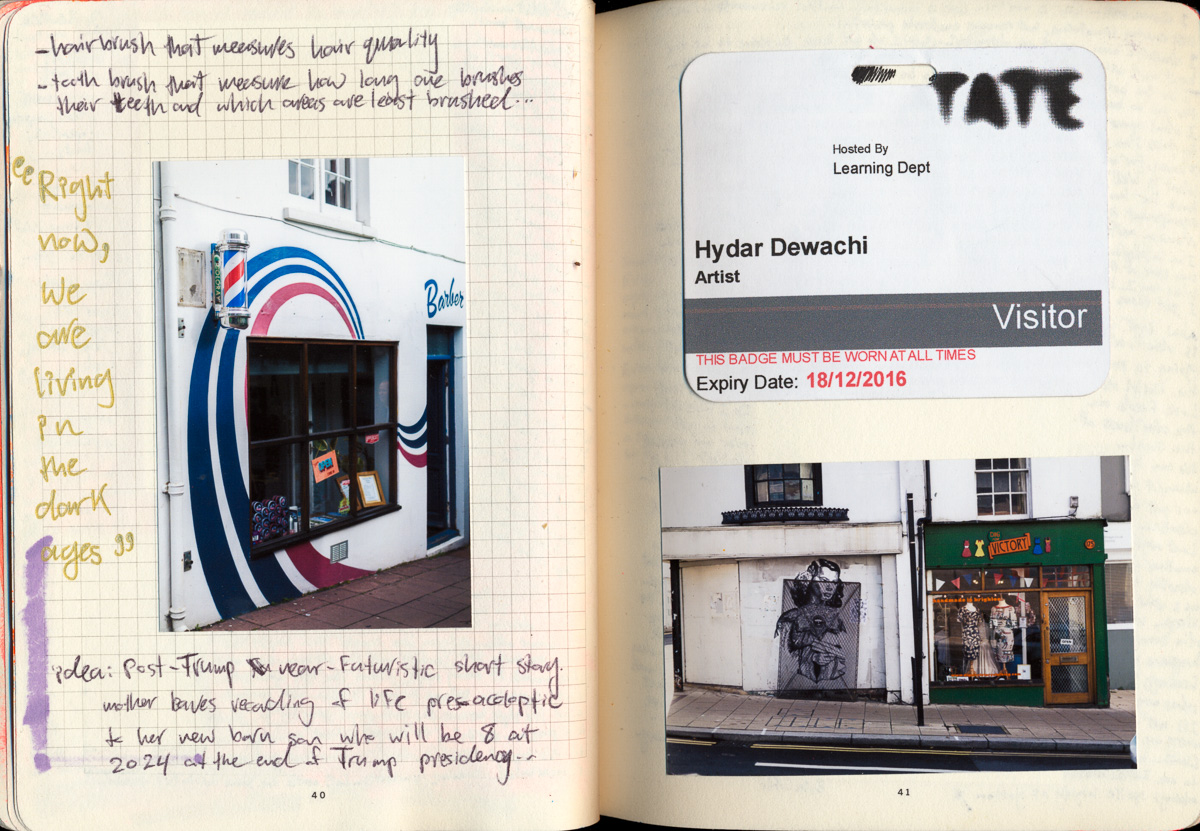 - hairbrush that measures hair quality
- teeth brush that measure how long one brushes
their teeth and which areas are least brushed...
"Right
now,
we
are
living
in
the
dark
ages"
Barber
idea: Post-Trump near-Futuristic short story.
mother leaves recording of life pre-acoloptic
to her new born son who will be 8 at
2024 at the end of Trump presidency...
40
TATE
Hosted By
Learning Dept
Hydar Dewachi
Artist
Visitor
THIS BADGE MUST BE WORN AT ALL TIMES
Expiry Date: 18/12/2016
VICTORY
41